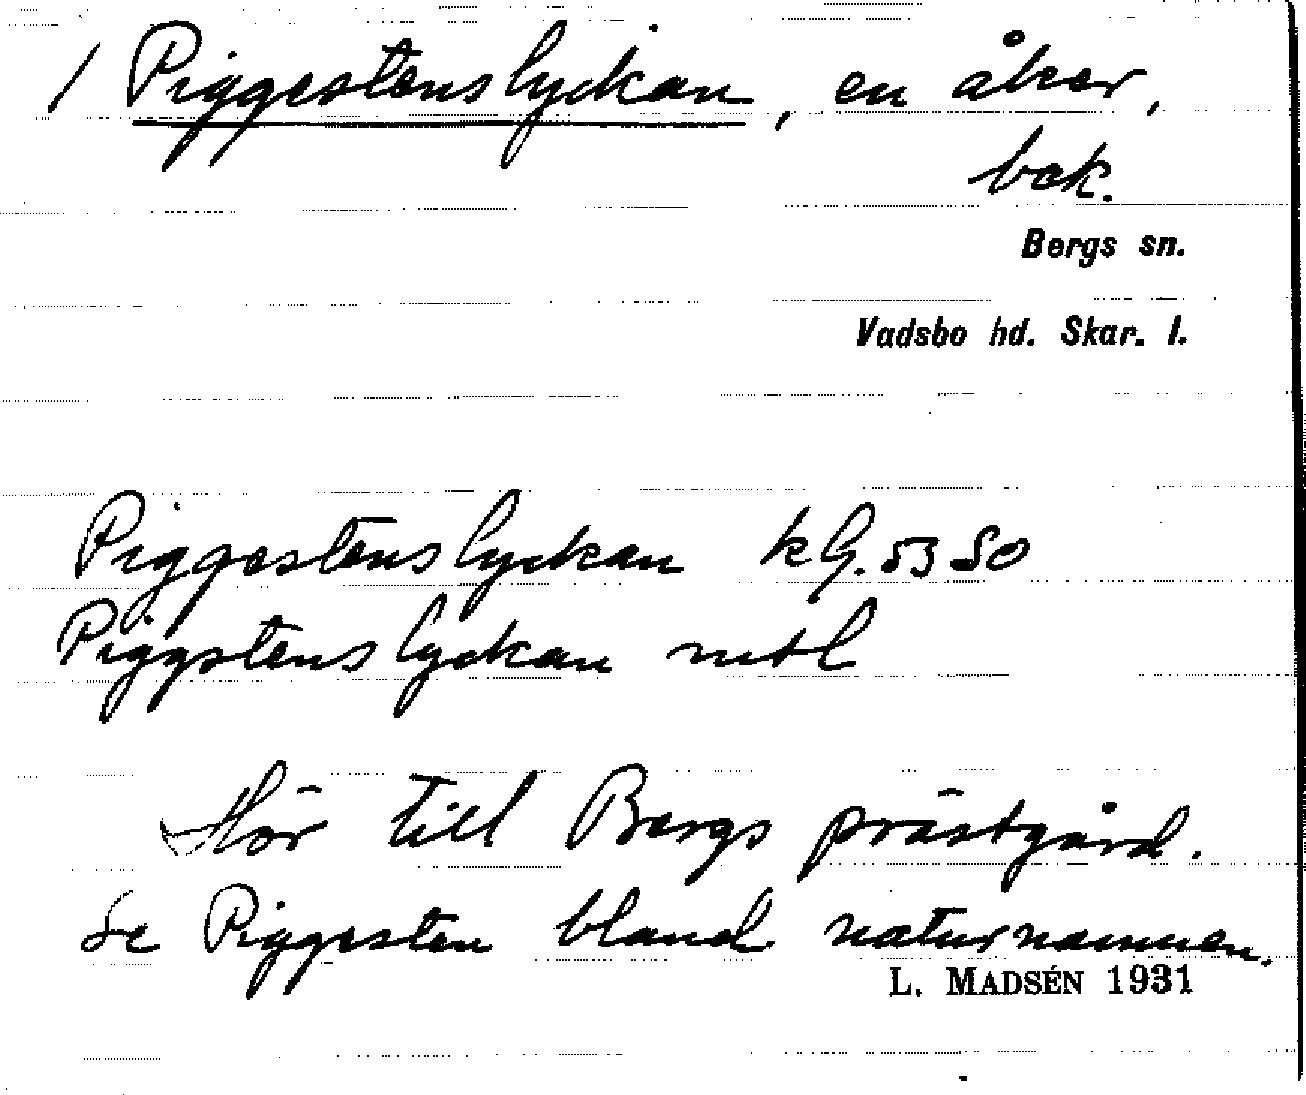 / Piggestenslyckan, en åker,
bck.
Bergs sn.
Vadsbo hd. Skar. l.
Piggestenslyckan kG. 53 SO
Piggstenslyckan mtl
Hör till Bergs prästgård.
Se Piggesten bland naturnamnen.
L. MADSÉN 1931